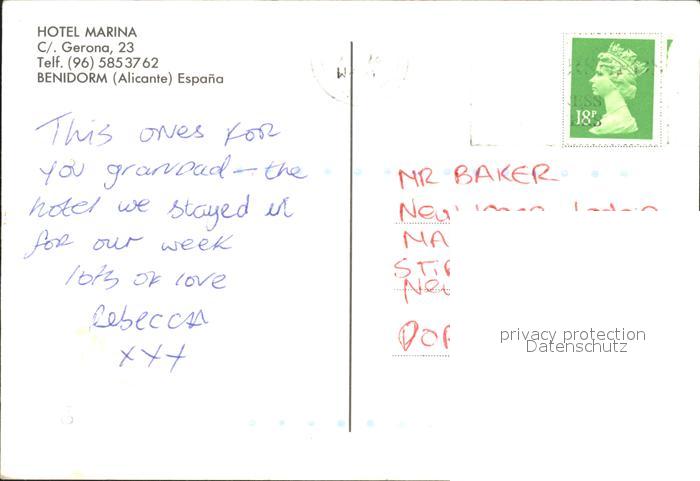 HOTEL MARINA
C/. Gerona, 23
Telf. (96) 5853762
BENIDORM (Alicante) España
This ones for
you grandad – the
hotel we stayed in
for our week
lots of love
Rebecca
xxx
18P
ESS
MR BAKER
MA
privacy protection
Datenschutz